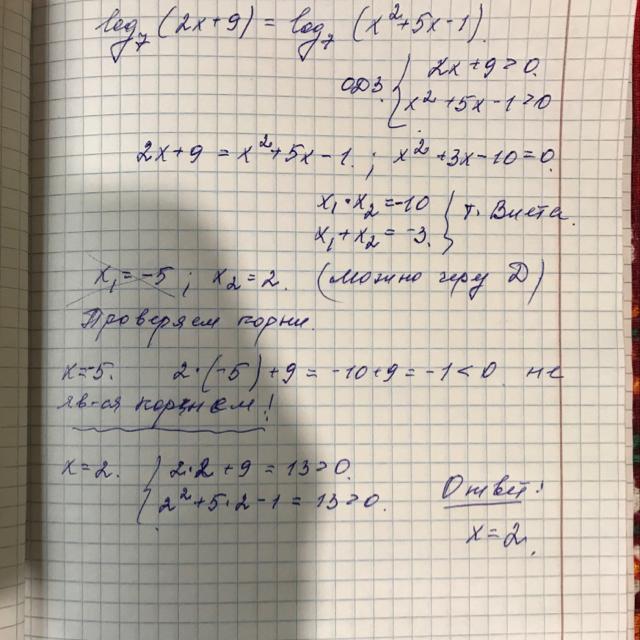 log₇(2x+9) = log₇(x²+5x-1).
ОДЗ. { 2x+9>0.
x²+5x-1>0
2x+9 = x²+5x-1. ; x²+3x-10=0.
x₁·x₂=-10
x₁+x₂=-3. } т. Виета.
x₁=-5; x₂=2. (можно через D)
Проверяем корни.
x=-5. 2·(-5)+9=-10+9=-1<0 не
яв-ся корнем!
x=2. { 2·2+9=13>0.
2²+5·2-1=13>0.
Ответ:
x=2.